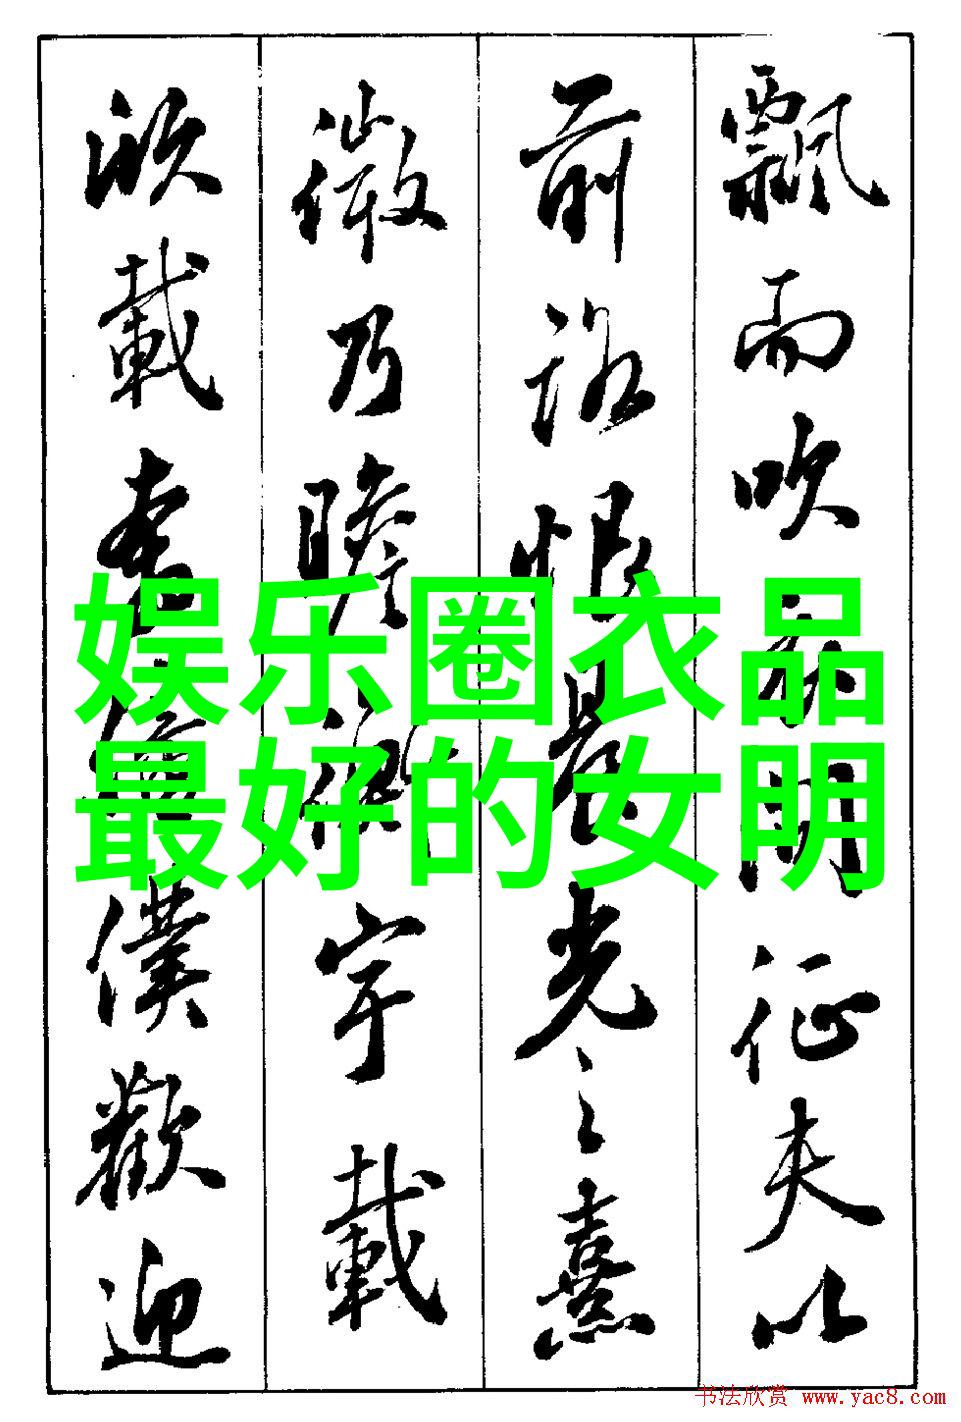 飄而吹衣問征夫以
前路恨晨光之熹
微乃瞻衡宇載
欣載奔僮僕歡迎
娱乐圈衣品
最好的女明
书法欣赏 www.yac8.com